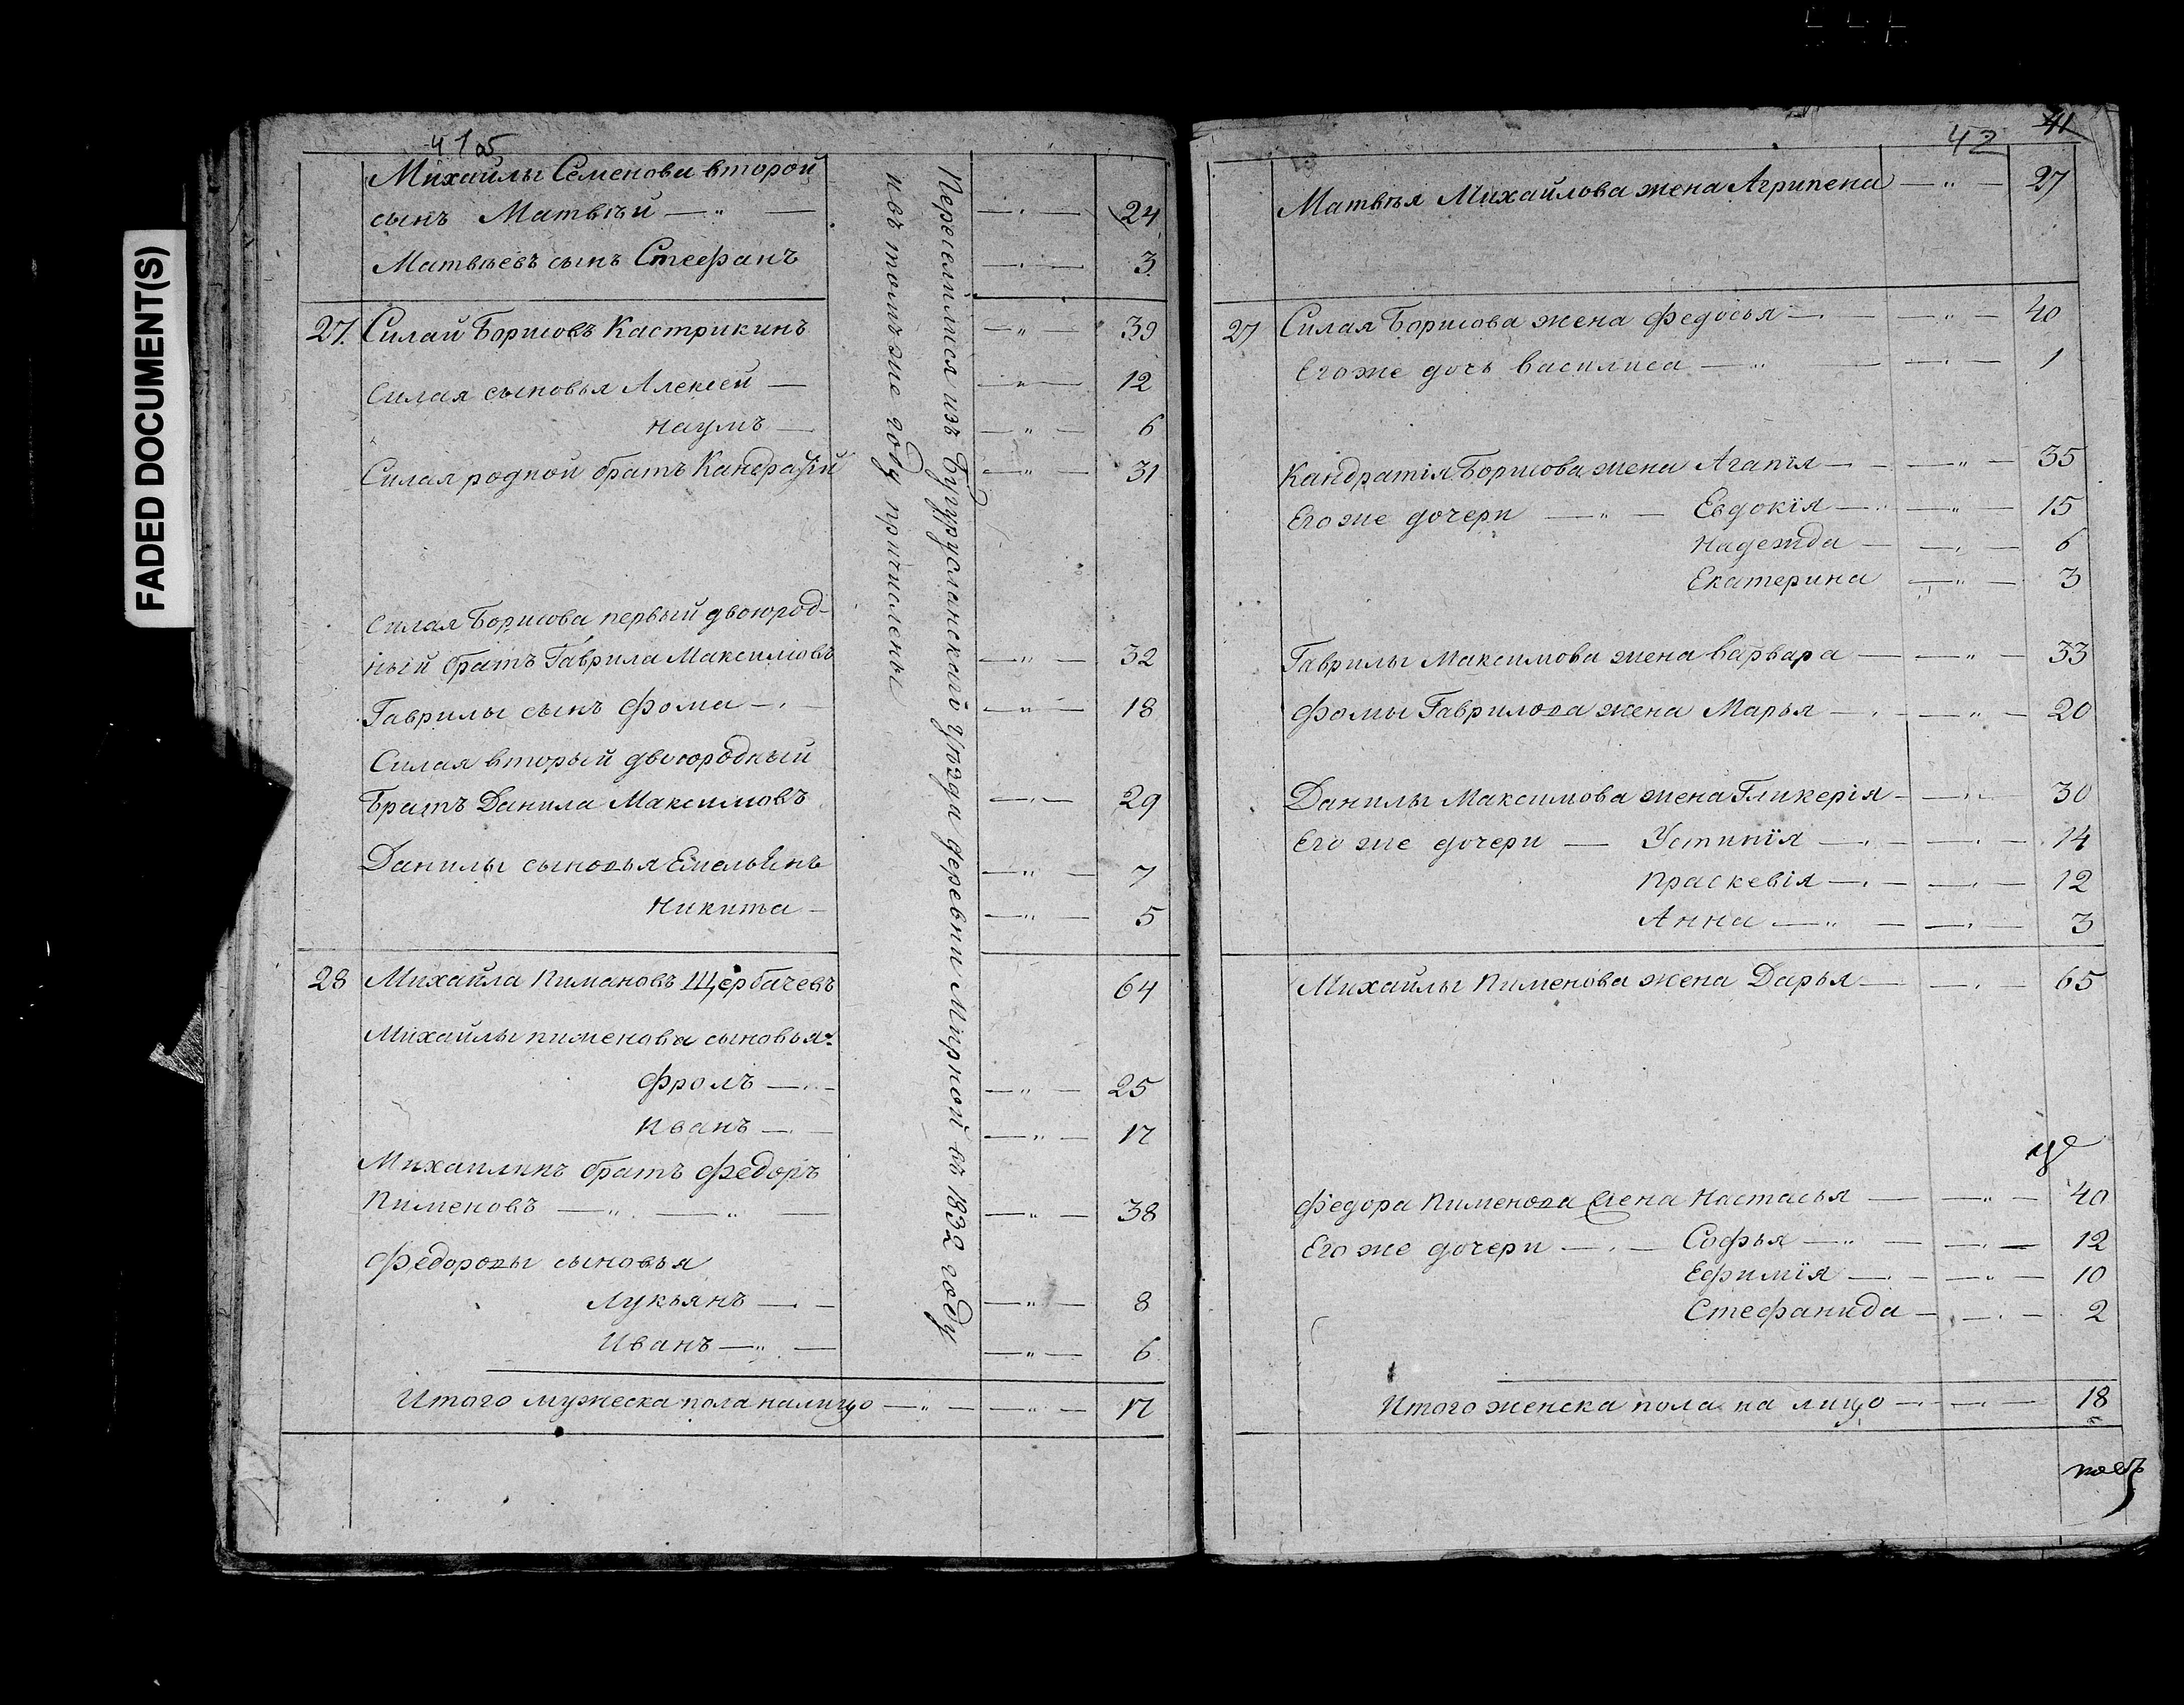 FADED DOCUMENT(S)
41об
Михайлы Семенова второй
сынъ Матвѣй — " — — " — 24
Матвѣевъ сынъ Стефанъ — " — 3
27. Силай Борисовъ Кастрикинъ — " — 39
Силая сыновья Алексей — — " — 12
Наумъ — — " — 6
Силая родной братъ Кандратiй — " — 31
Силая Борисова первый двоюрод-
ный братъ Гаврила Максимовъ — " — 32
Гаврилы сынъ Фома — " — — " — 18
Силая вторый двоюродный
братъ Данила Максимовъ — " — 29
Данилы сыновья Емельянъ — " — 7
Никита — — " — 5
28 Михайла Пимановъ Щербачевъ 64
Михайлы Пименова сыновья:
Фролъ — " — — " — 25
Иванъ — " — — " — 17
Михаилинъ братъ Федоръ
Пименовъ — " — " — — " — 38
Федоровы сыновья
Лукьянъ — " — — " — 8
Иванъ — " — — " — 6
Итого мужеска пола налицо — " — — " — 17
Переселились изъ Бугурусланскаго уѣзда деревни Мирной въ 1832 году
и въ томъ же году причислены
42 41
Матвѣя Михайлова жена Агрипена — " — 27
27 Силая Борисова жена Федосья — " — — " — 40
Его же дочь Василиса — " — — " — 1
Кандратiя Борисова жена Агапiя — " — — " — 35
Его же дочери — " — Евдокiя — " — " — 15
Надежда — — " — 6
Екатерина — " — 3
Гаврилы Максимова жена Варвара — — " — 33
Фомы Гаврилова жена Марья — " — — " — 20
Данилы Максимова жена Гликерiя — — " — 30
Его же дочери — Устинiя — " — — " — 14
Праскевiя — " — — " — 12
Анна — " — — " — 3
Михайлы Пименова жена Дарья — — " — 65
Федора Пименова жена Настасья — — " — 40
Его же дочери — " — Софья — " — — " — 12
Ефимiя — " — — " — 10
Стефанида — " — 2
Итого женска пола на лицо — " — — " — 18